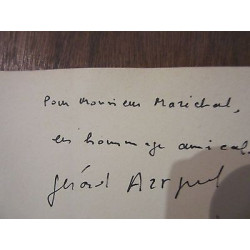 Pour Monsieur Maréchal,
en hommage amical
Gérard